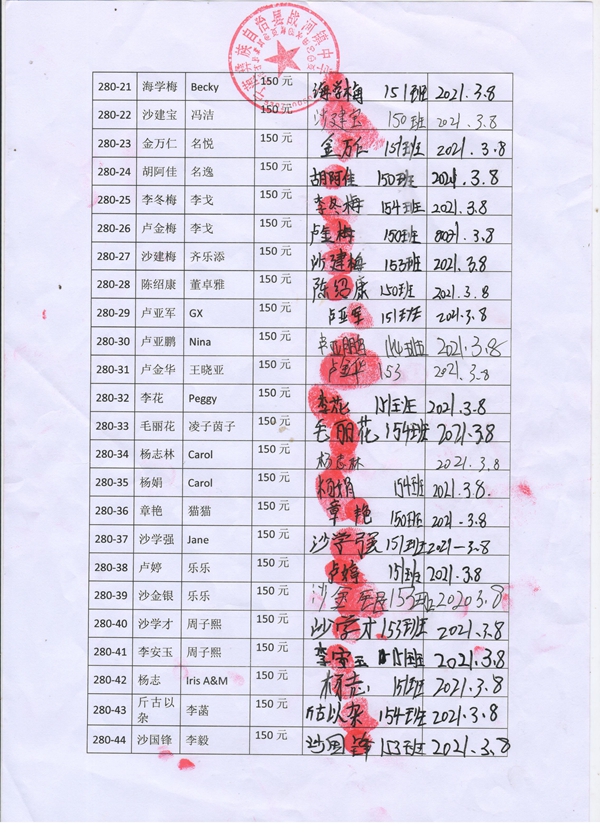 族自治县战河镇中
280-21 海学梅 Becky 150 元 海学梅 151班 2021.3.8
280-22 沙建宝 冯洁 150 元 沙建宝 150班 2021.3.8
280-23 金万仁 名悦 150 元 金万仁 151班 2021.3.8
280-24 胡阿佳 名逸 150 元 胡阿佳 150班 2021.3.8
280-25 李冬梅 李戈 150 元 李冬梅 154班 2021.3.8
280-26 卢金梅 李戈 150 元 卢金梅 150班 .3.8
280-27 沙建梅 齐乐添 150 元 沙建梅 153班 2021.3.8
280-28 陈绍康 董卓雅 150 元 陈绍康 150班 2021.3.8
280-29 卢亚军 GX 150 元 卢亚军 151班 2021.3.8
280-30 卢亚鹏 Nina 150 元 卢亚鹏 班 2021.3.8
280-31 卢金华 王晓亚 150 元 卢金华 153 2021.3.8
280-32 李花 Peggy 150 元 李花 151班 2021.3.8
280-33 毛丽花 凌子茵子 150 元 毛丽花 154班 2021.3.8
280-34 杨志林 Carol 150 元 杨志林 2021.3.8
280-35 杨娟 Carol 150 元 杨娟 154班 2021.3.8.
280-36 章艳 猫猫 150 元 章艳 150班 2021.3.8
280-37 沙学强 Jane 150 元 沙学强 151班 2021-3.8
280-38 卢婷 乐乐 150 元 卢婷 151班 2021.3.8
280-39 沙金银 乐乐 150 元 沙金银 153班 2020 3.8
280-40 沙学才 周子熙 150 元 沙学才 153班 2021.3.8
280-41 李安玉 周子熙 150 元 李安玉 151班 2021.3.8
280-42 杨志 Iris A&M 150 元 杨志 151班 2021.3.8
280-43 斤古以杂 李菡 150 元 斤古以杂 154班 2021.3.8
280-44 沙国锋 李毅 150 元 沙国锋 153班 2021.3.8